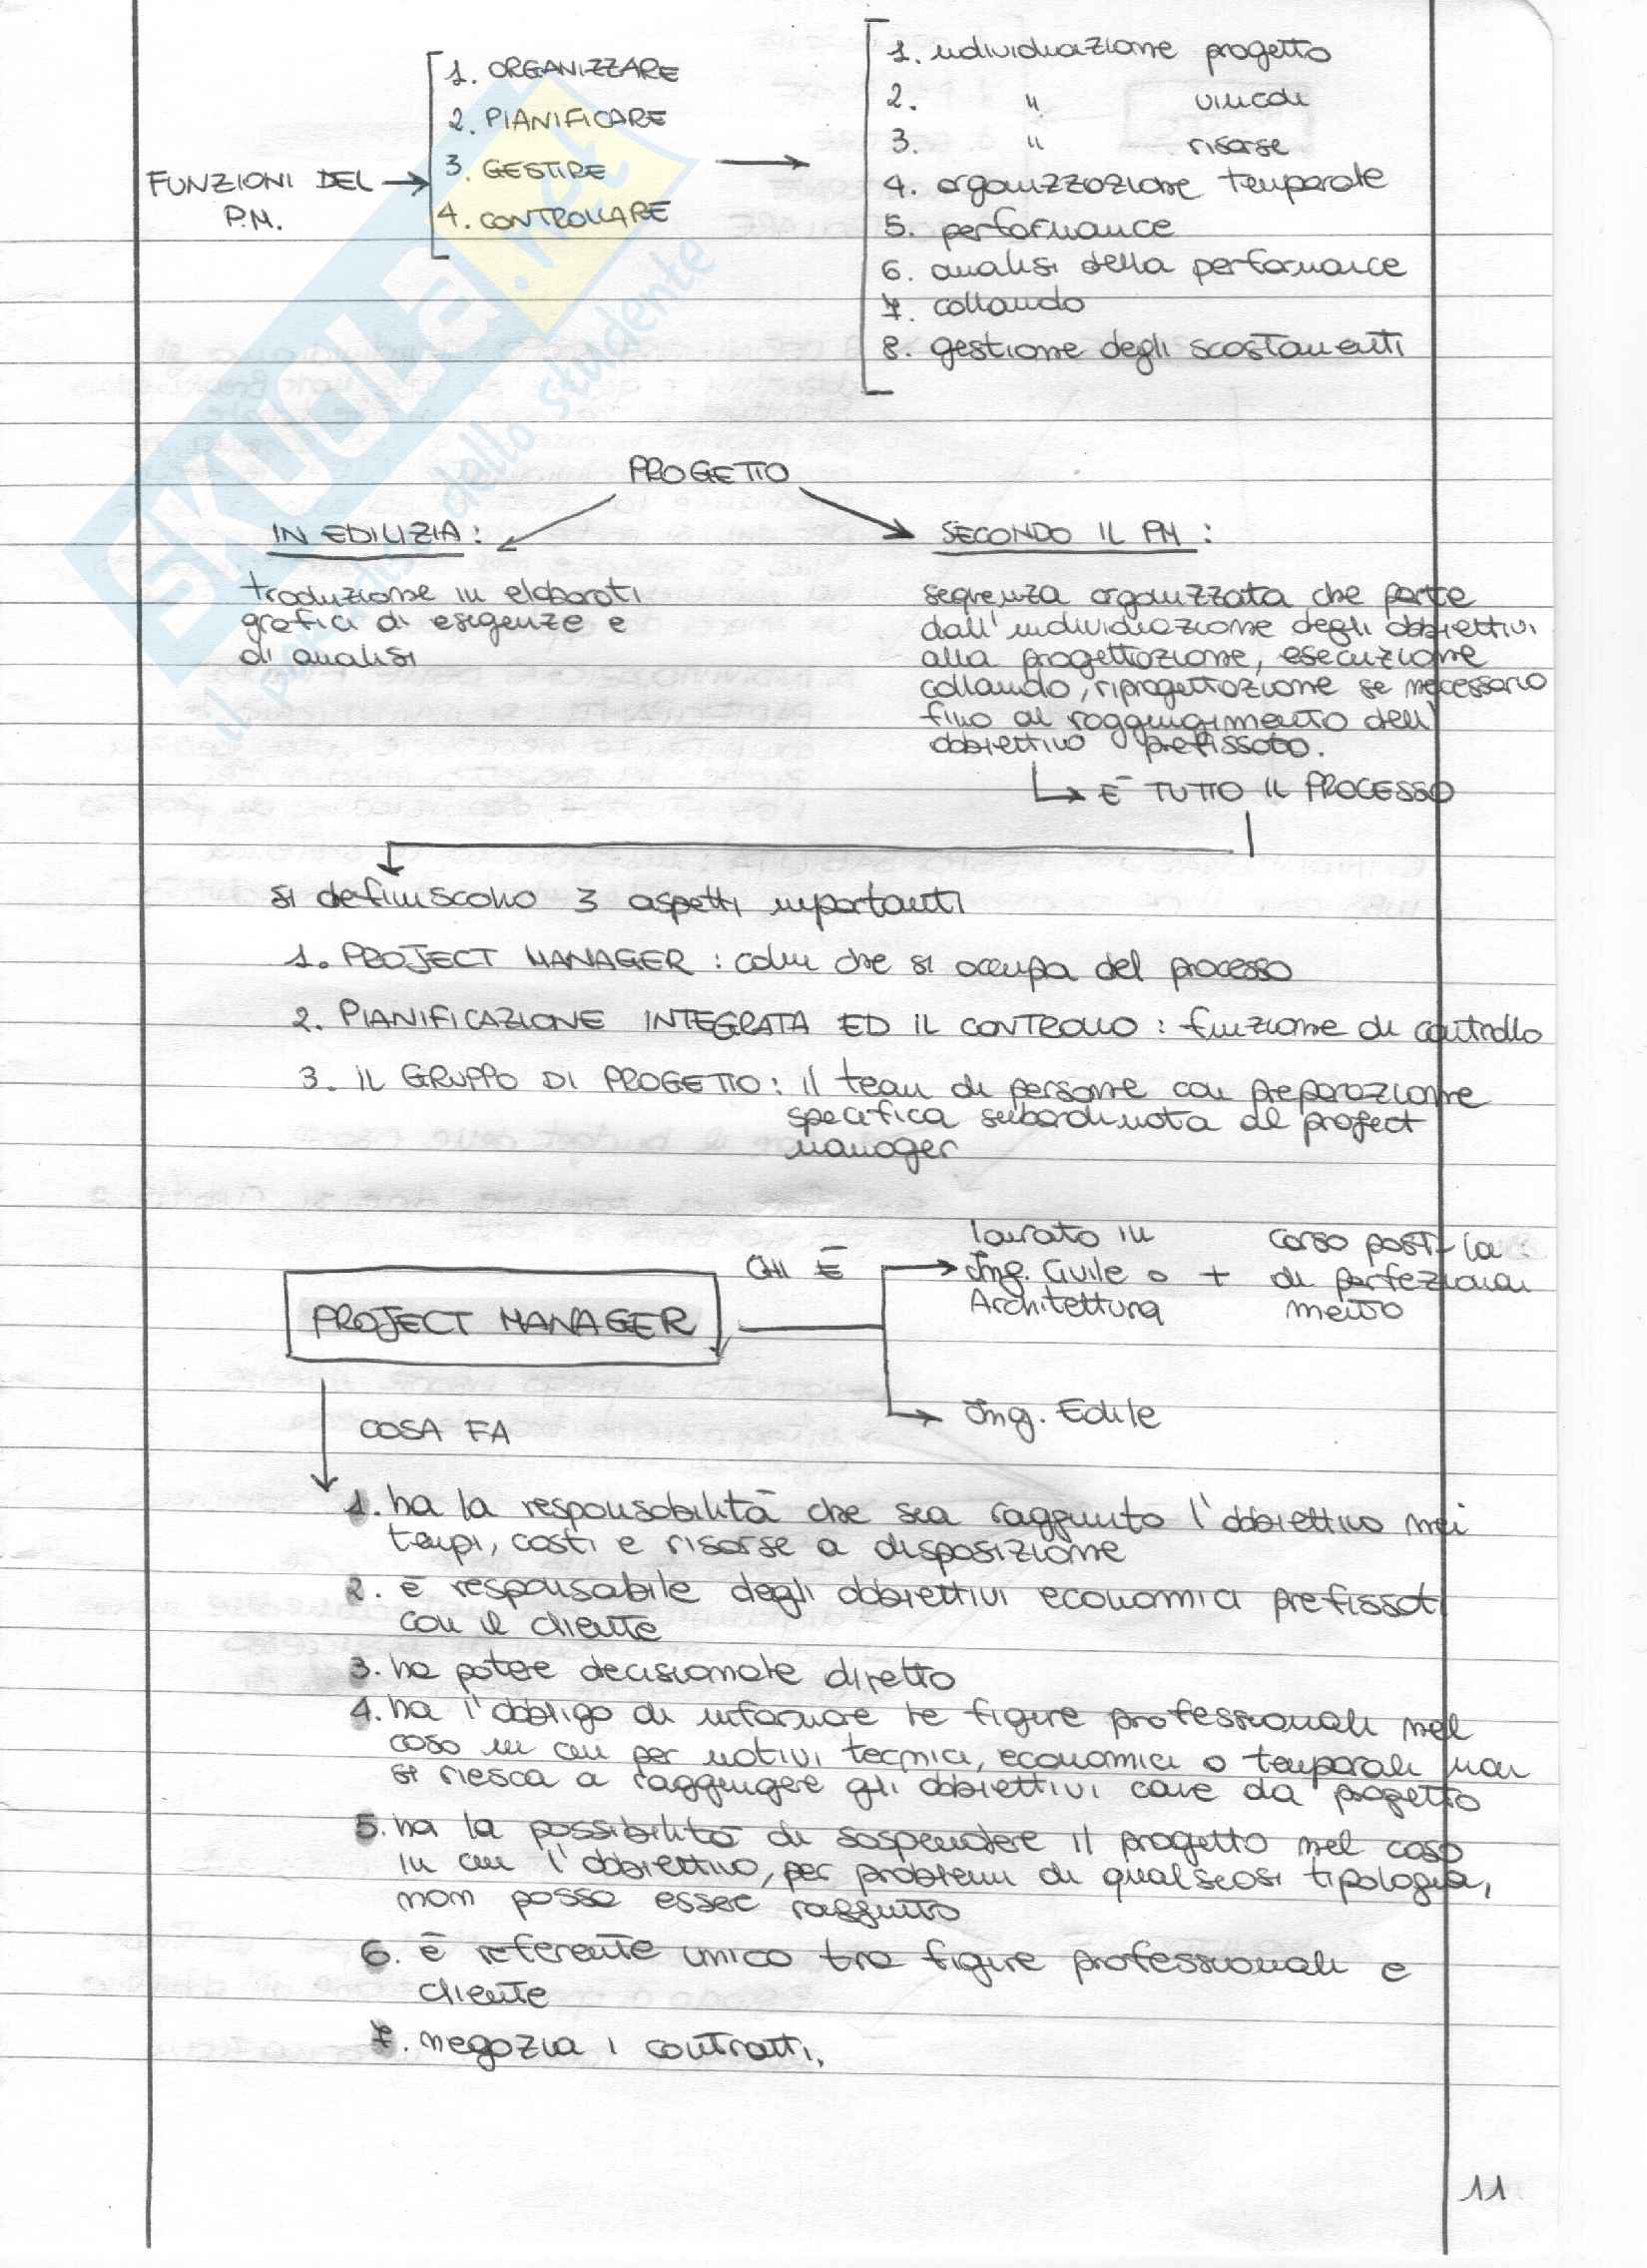 FUNZIONI DEL
P.M.
1. ORGANIZZARE
2. PIANIFICARE
3. GESTIRE
4. CONTROLLARE
1. individuazione progetto
2. " vincoli
3. " risorse
4. organizzazione temporale
5. performance
6. analisi della performance
7. collaudo
8. gestione degli scostamenti
SKUOLA.net
il paradiso dello studente
PROGETTO
IN EDILIZIA:
traduzione in elaborati
grafici di esigenze e
di analisi
SECONDO IL PM:
sequenza organizzata che parte
dall'individuazione degli obbiettivi
alla progettazione, esecuzione
collaudo, riprogettazione se necessario
fino al raggiungimento dell'
obbiettivo prefissato.
È TUTTO IL PROCESSO
si definiscono 3 aspetti importanti
1. PROJECT MANAGER: colui che si occupa del processo
2. PIANIFICAZIONE INTEGRATA ED IL CONTROLLO: funzione di controllo
3. IL GRUPPO DI PROGETTO: il team di persone con preparazione
specifica subordinata al project
manager
PROJECT MANAGER
CHI È
laurato in
Ing. Civile o
Architettura
+
corso post-la
di perfeziona
mento
Ing. Edile
COSA FA
1. ha la responsabilità che sia raggiunto l'obbiettivo nei
tempi, costi e risorse a disposizione
2. è responsabile degli obbiettivi economici prefissati
con il cliente
3. ha potere decisionale diretto
4. ha l'obbligo di informare le figure professionali nel
caso in cui per motivi tecnici, economici o temporali non
si riesca a raggiungere gli obbiettivi come da progetto
5. ha la possibilità di sospendere il progetto nel caso
in cui l'obbiettivo, per problemi di qualsiasi tipologia,
non possa essere raggiunto
6. è referente unico tra figure professionali e
cliente
7. negozia i contratti.
11